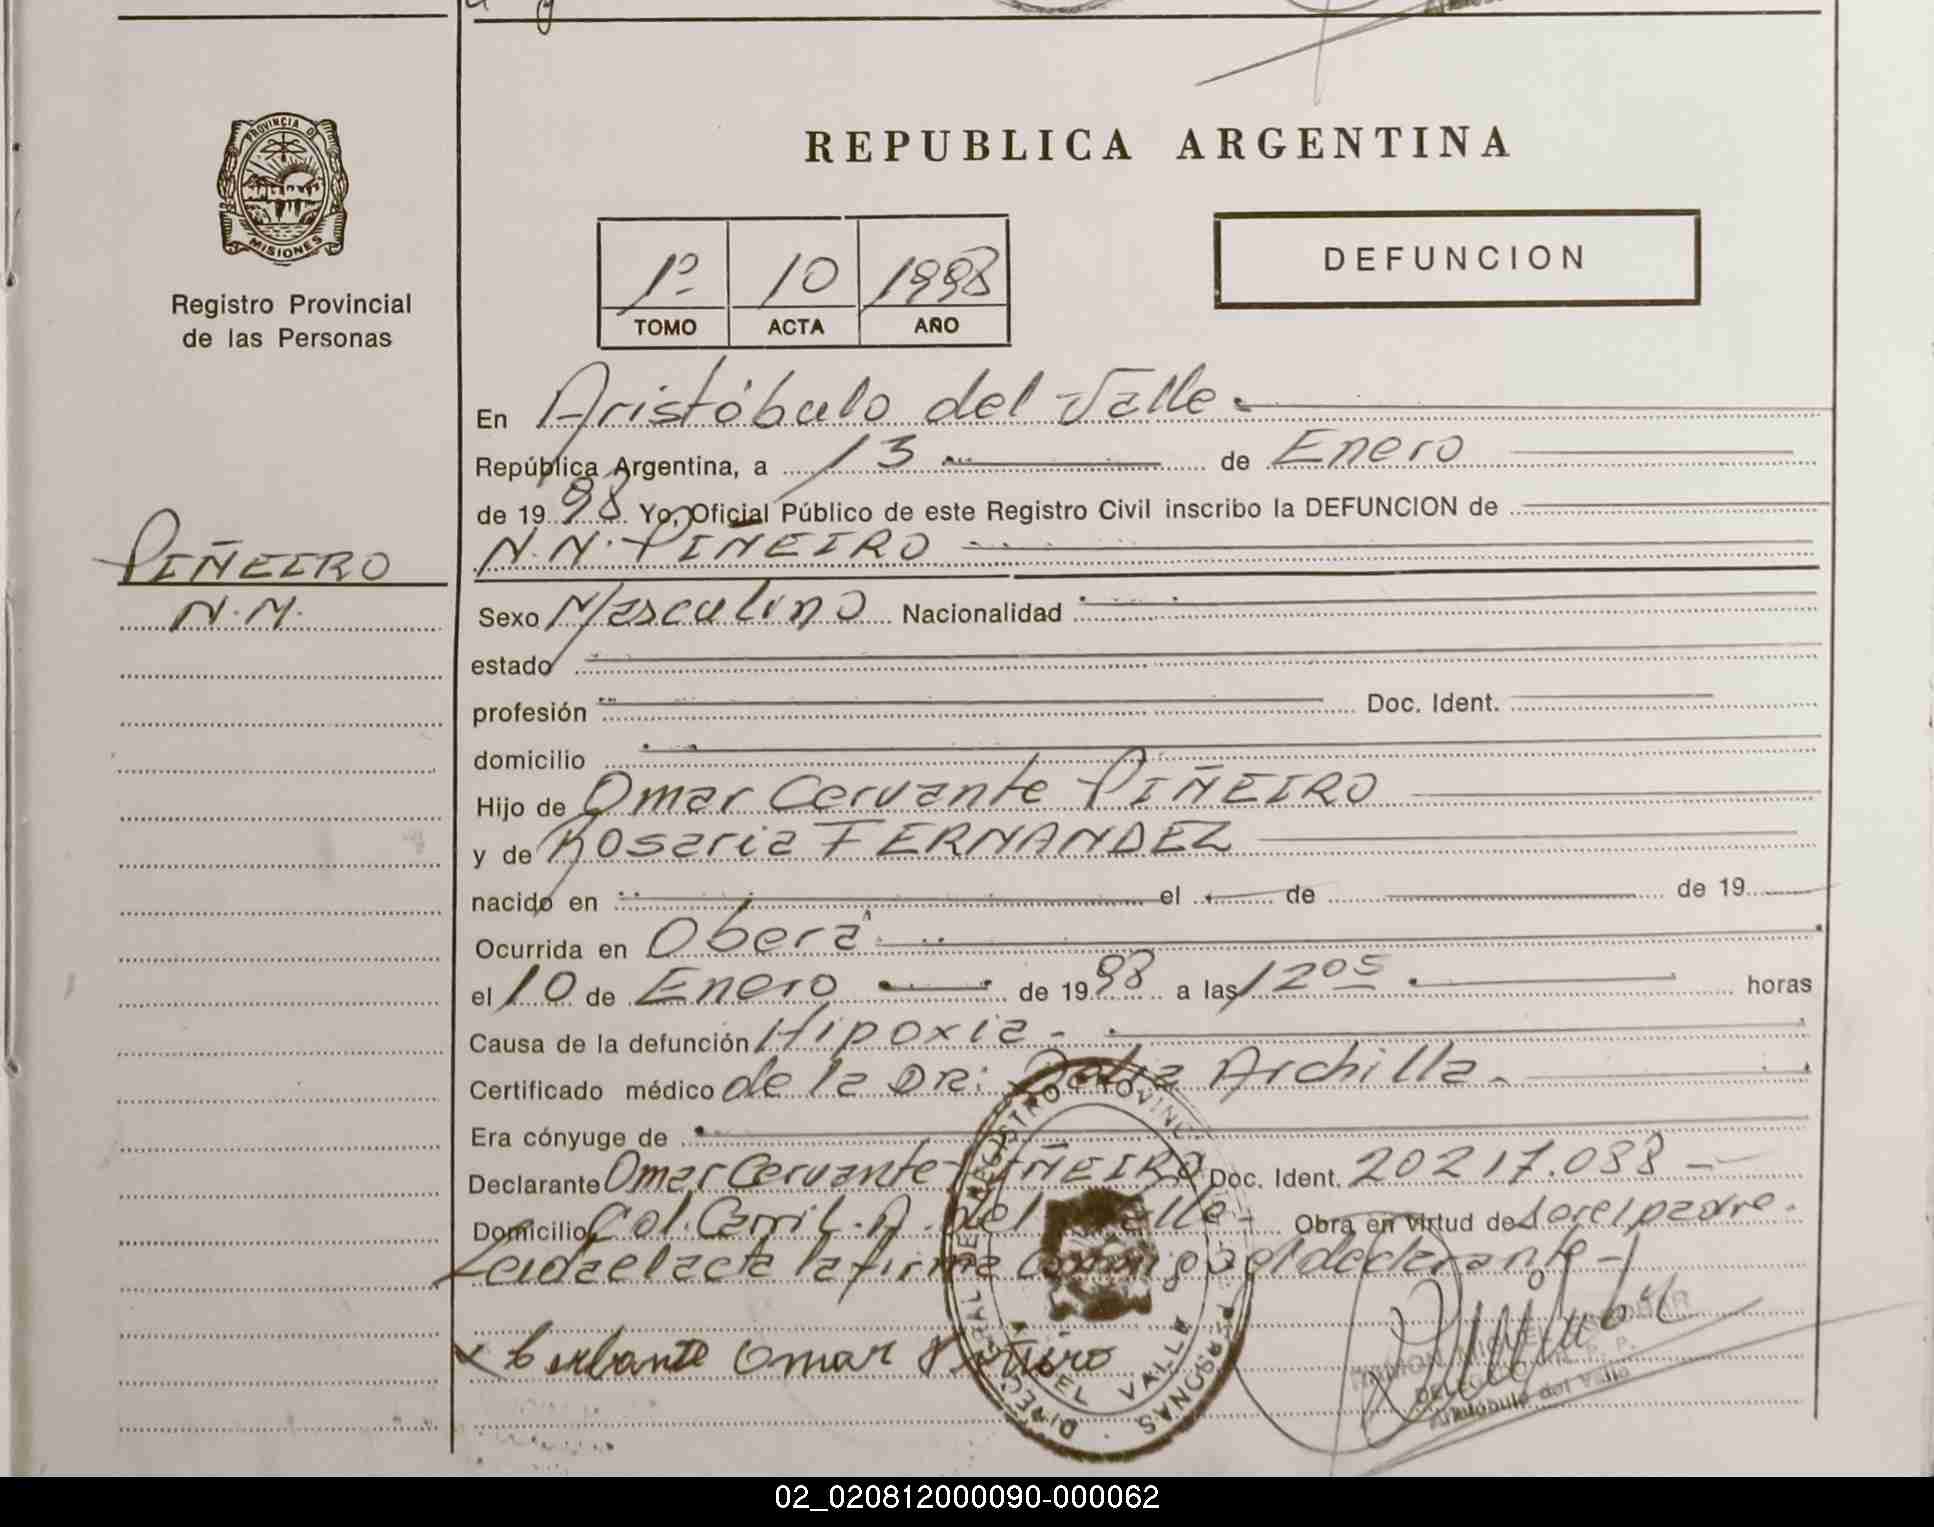 PROVINCIA DE
MISIONES
Registro Provincial
de las Personas
PIÑEIRO
N.N.
REPUBLICA ARGENTINA
1º 10 1998
TOMO ACTA AÑO
DEFUNCION
En Aristóbulo del Valle.
República Argentina, a 13 de Enero
de 1998 Yo, Oficial Público de este Registro Civil inscribo la DEFUNCION de
N.N. PIÑEIRO
Sexo Masculino Nacionalidad
estado
profesión Doc. Ident.
domicilio
Hijo de Omar Cervante PIÑEIRO
y de Rosaria FERNANDEZ
nacido en el de de 19
Ocurrida en Oberá
el 10 de Enero de 1998 a las 12 05 horas
Causa de la defunción Hipoxia -
Certificado médico de la DR: Archilla -
Era cónyuge de
Declarante Omar Cervante PIÑEIRO Doc. Ident. 20217.088 -
Domicilio Col. Carril. A. del Valle - Obra en virtud de ser el padre.
Leida el acta la firma conmigo el declarante -
Cerbante Omar Piñeiro
DEL VALLE
RAMON MIGUEL
Aristóbulo del Valle
02_020812000090-000062